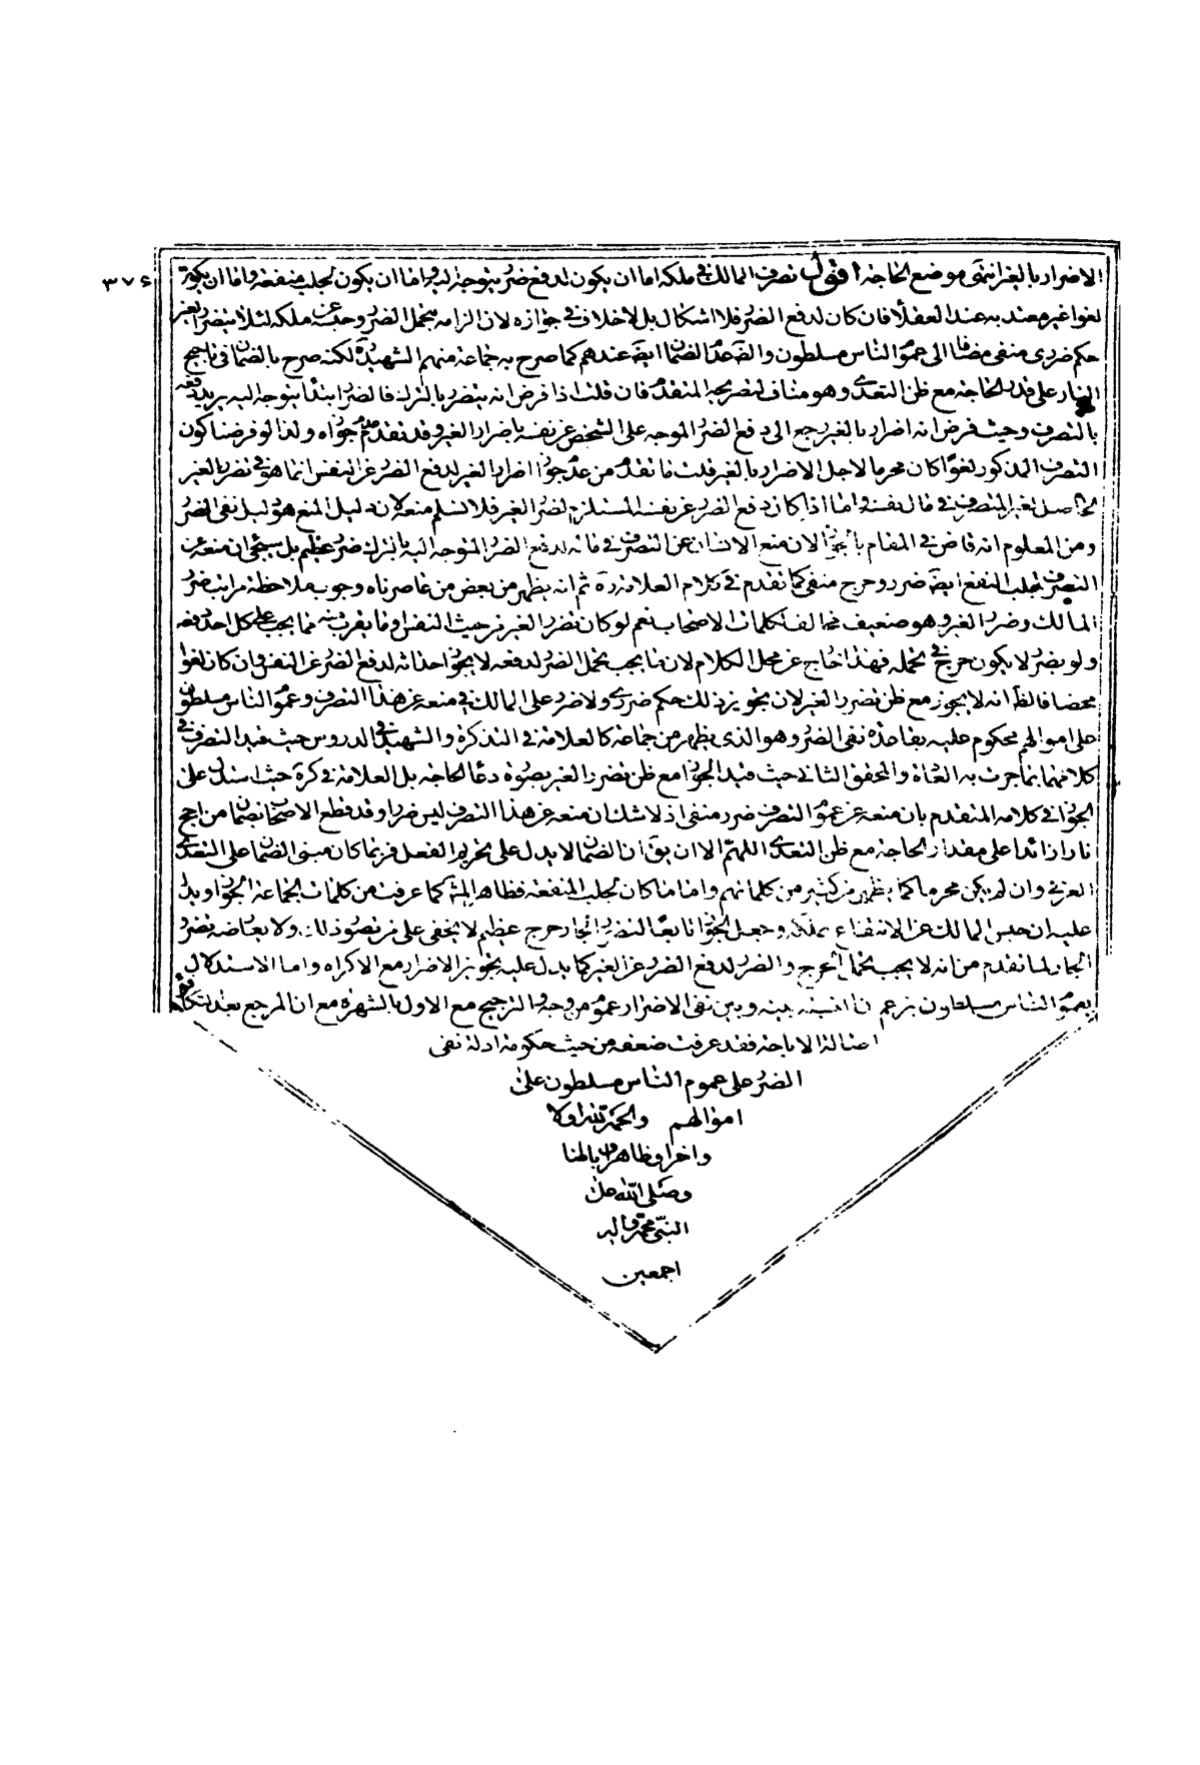 ٣٧۶
الاضرار بالغير انتهى موضع الحاجة اقول تصرف المالك في ملكه اما ان يكون لدفع ضرر يتوجه اليه واما ان يكون لجلب منفعة واما ان يكون
لغوا غير معتد به عند العقلاء فان كان لدفع الضرر فلا اشكال بل لا خلاف في جوازه لان الزامه بتحمل الضرر وحبسه عن ملكه لئلا يتضرر الغير
حكم ضرري منفي مضافا الى عموم الناس مسلطون والظ عدم الضمان ايضا عندهم كما صرح به جماعة منهم الشهيد ره لكنه صرح بالضمان في تاجيج
النار على قدر الحاجة مع ظن التعدي وهو مناف لتصريحه المتقدم فان قلت اذا فرض انه يتضرر بالترك فالضرر ابتداء يتوجه اليه يريد دفعه
بالتصرف وحيث فرض انه اضرار بالغير رجع الى دفع الضرر الموجه على الشخص عن نفسه باضرار الغير وقد تقدم عدم جوازه ولذا لو فرضنا كون
التصرف المذكور لغوا كان محرما لاجل الاضرار بالغير قلت ما تقدم من عدم جواز اضرار الغير لدفع الضرر عن النفس انما هو في تضرر الغير
الحاصل بغير المتصرف في مال نفسه واما اذا كان دفع الضرر عن نفسه المستلزم لضرر الغير فلا نسلم منعه لان دليل المنع هو دليل نفي الضرر
ومن المعلوم انه قاض في المقام بالجواز لان منع الانسان عن التصرف في ماله لدفع الضرر المتوجه اليه بالترك ضرر عظيم بل سيجئ ان منعه عن
التصرف لجلب النفع ايضا ضرر وحرج منفي كما تقدم في كلام العلامة ره ثم انه يظهر من بعض من عاصرناه وجوب ملاحظة مراتب ضرر
المالك وضرر الغير وهو ضعيف مخالف لكلمات الاصحاب نعم لو كان تضرر الغير من حيث النفس او ما يقرب منه مما يجب على كل احد دفعه
ولو بضرر لا يكون حرج في تحمله فهذا خارج عن محل الكلام لان ما يجب تحمل الضرر لدفعه لا يجوز احداثه لدفع الضرر عن النفس وان كان لغوا
محضا فالظ انه لا يجوز مع ظن تضرر الغير لان تجويز ذلك حكم ضرري ولا ضرر على المالك في منعه عن هذا التصرف وعموم الناس مسلطون
على اموالهم محكوم عليه بقاعدة نفي الضرر وهو الذي يظهر من جماعة كالعلامة في التذكرة والشهيد في الدروس حيث قيد التصرف في
كلامهما بما جرت به العادة والمحقق الثاني حيث قيد الجواز مع ظن تضرر الغير بصورة دعاء الحاجة بل العلامة في كرة حيث استدل على
الجواز في كلامه المتقدم بان منعه عن عموم التصرف ضرر منفي اذ لا شك ان منعه عن هذا التصرف ليس ضررا وقد قطع الاصحاب بضمان من اجج
نارا زائدا على مقدار الحاجة مع ظن التعدي اللهم الا ان يق ان الضمان لا يدل على تحريم الفعل فربما كان مبنى الضمان على التعدي
العرفي وان لم يكن محرما كما يظهر من كثير من كلماتهم واما ما كان لجلب المنفعة فظاهر المش كما عرفت من كلمات الجماعة الجواز ويدل
عليه ان حبس المالك عن الانتفاع بملكه وجعل الجواز تابعا لتضرر الجار حرج عظيم لا يخفى على من تصور ذلك ولا يعارضه تضرر
الجار لما تقدم من انه لا يجب تحمل الحرج والضرر لدفع الضرر عن الغير كما يدل عليه تجويز الاضرار مع الاكراه واما الاستدلال
بعموم الناس مسلطون بزعم ان النسبة بينه وبين نفي الاضرار عموم من وجه والترجيح مع الاول بالشهرة مع ان المرجع بعد التكافؤ
اصالة الاباحة فقد عرفت ضعفه من حيث حكومة ادلة نفي
الضرر على عموم الناس مسلطون على
اموالهم والحمد لله اولا
واخرا وظاهرا وباطنا
وصلى الله على
النبي محمد واله
اجمعين